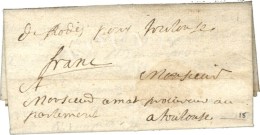 de Rodez pour Toulouse
franc
A
Monsieur
Monsieur amat procureur au
parlement
a toulouse